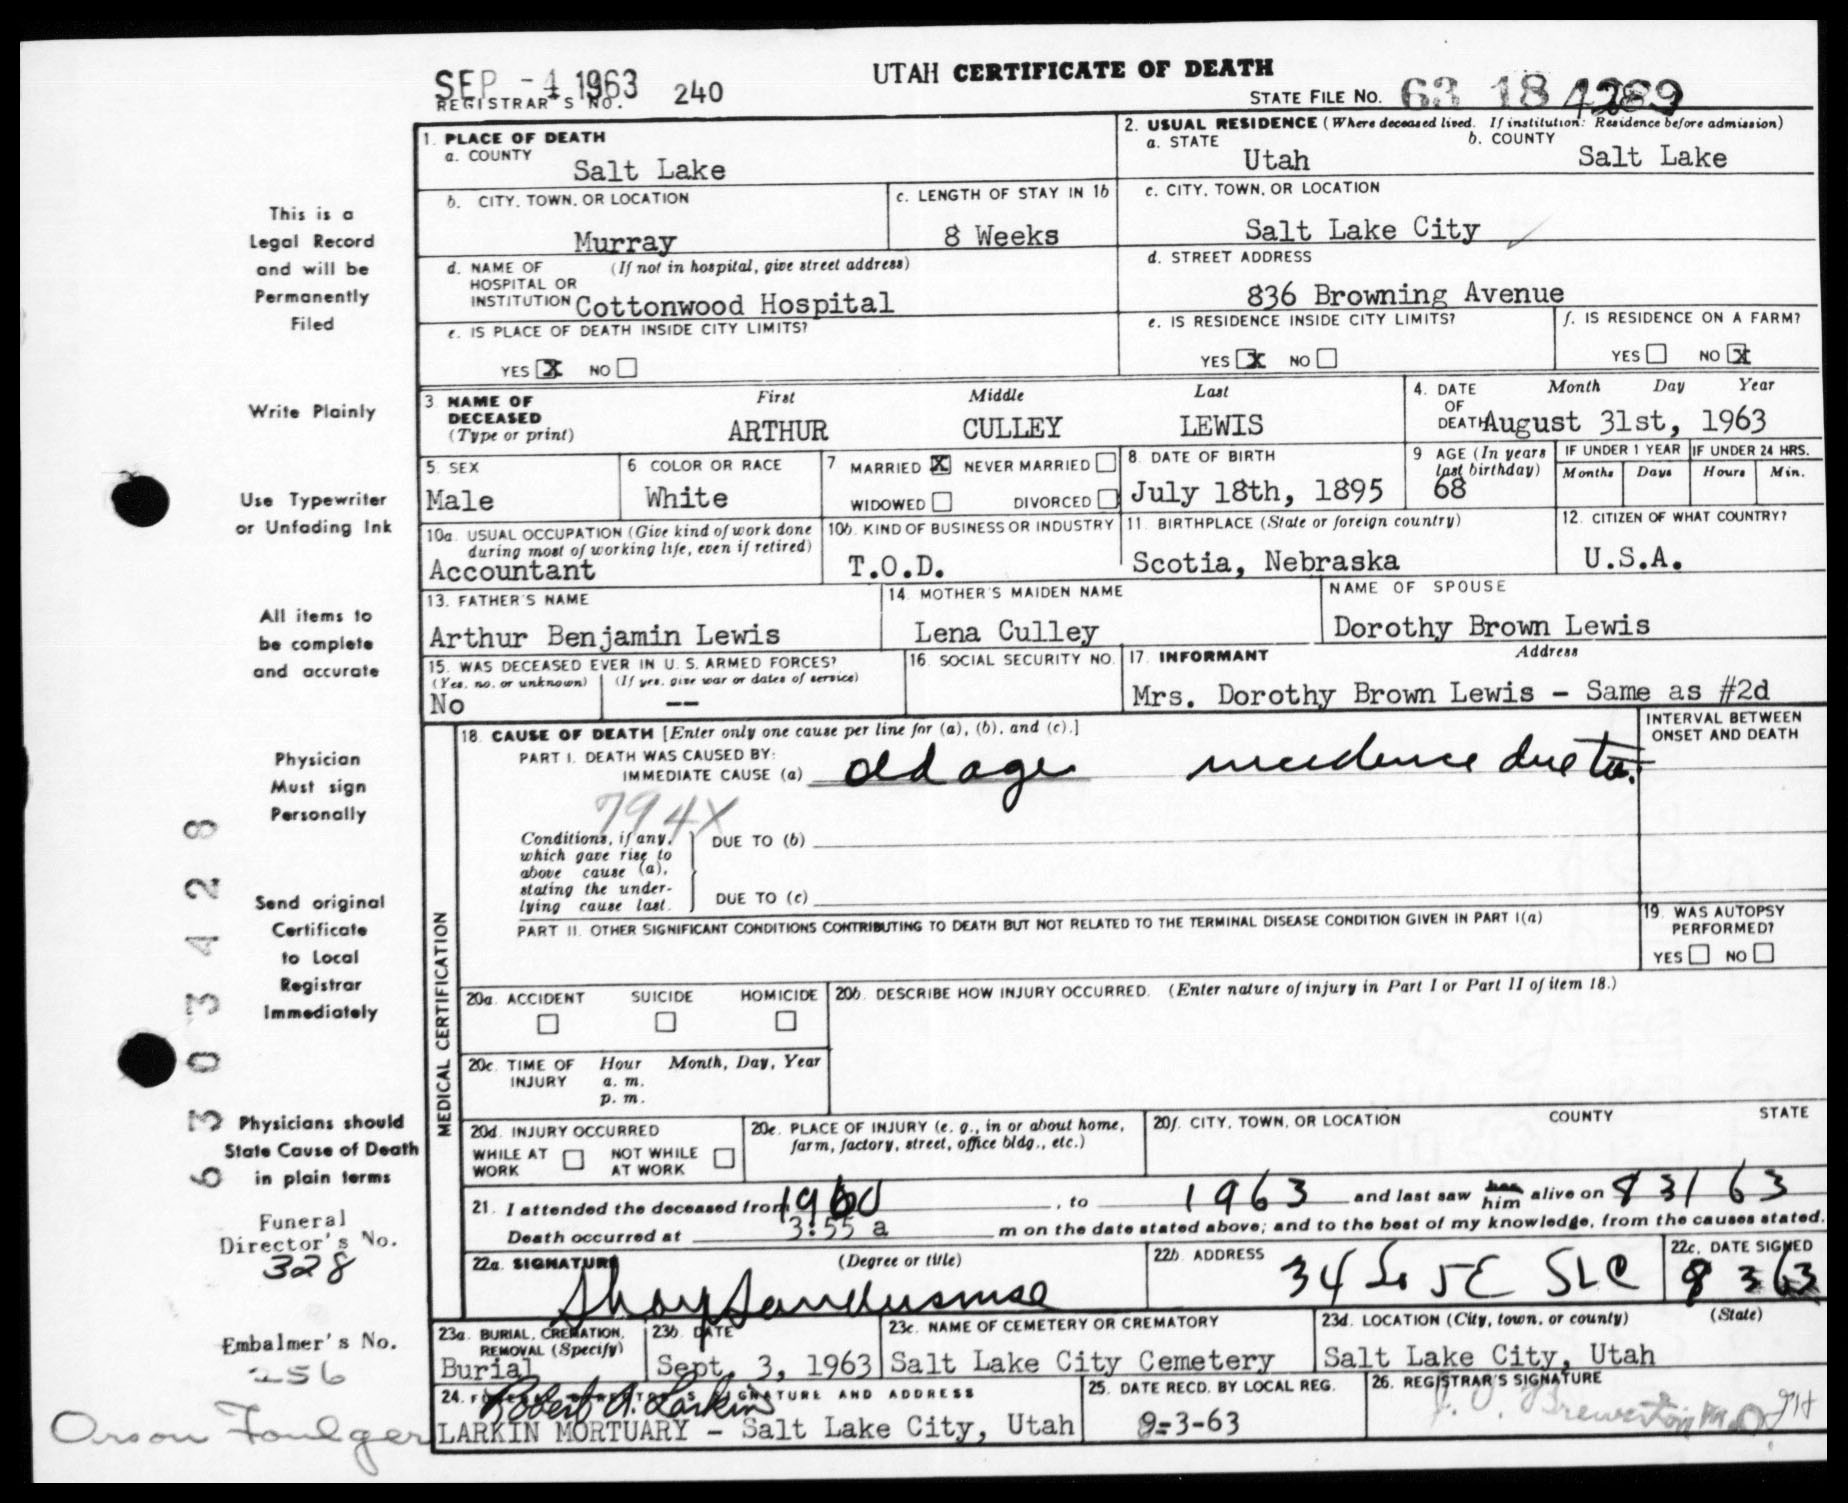 SEP -4 1963
REGISTRAR'S NO. 240
UTAH CERTIFICATE OF DEATH
STATE FILE NO. 63 18 4289
1. PLACE OF DEATH
a. COUNTY
Salt Lake
2. USUAL RESIDENCE (Where deceased lived. If institution: Residence before admission)
a. STATE b. COUNTY
Utah Salt Lake
b. CITY, TOWN, OR LOCATION
Murray
c. LENGTH OF STAY IN 1b
8 Weeks
c. CITY, TOWN, OR LOCATION
Salt Lake City
d. NAME OF (If not in hospital, give street address)
HOSPITAL OR
INSTITUTION Cottonwood Hospital
d. STREET ADDRESS
836 Browning Avenue
e. IS PLACE OF DEATH INSIDE CITY LIMITS?
YES X NO
e. IS RESIDENCE INSIDE CITY LIMITS?
YES X NO
f. IS RESIDENCE ON A FARM?
YES NO X
3. NAME OF DECEASED (Type or print)
First Middle Last
ARTHUR CULLEY LEWIS
4. DATE OF DEATH Month Day Year
August 31st, 1963
5. SEX
Male
6. COLOR OR RACE
White
7. MARRIED X NEVER MARRIED
WIDOWED DIVORCED
8. DATE OF BIRTH
July 18th, 1895
9. AGE (In years last birthday)
68
IF UNDER 1 YEAR
Months Days
IF UNDER 24 HRS.
Hours Min.
10a. USUAL OCCUPATION (Give kind of work done
during most of working life, even if retired)
Accountant
10b. KIND OF BUSINESS OR INDUSTRY
T.O.D.
11. BIRTHPLACE (State or foreign country)
Scotia, Nebraska
12. CITIZEN OF WHAT COUNTRY?
U.S.A.
13. FATHER'S NAME
Arthur Benjamin Lewis
14. MOTHER'S MAIDEN NAME
Lena Culley
NAME OF SPOUSE
Dorothy Brown Lewis
15. WAS DECEASED EVER IN U. S. ARMED FORCES?
(Yes, no, or unknown) (If yes, give war or dates of service)
No --
16. SOCIAL SECURITY NO.
17. INFORMANT Address
Mrs. Dorothy Brown Lewis - Same as #2d
MEDICAL CERTIFICATION
18. CAUSE OF DEATH [Enter only one cause per line for (a), (b), and (c).]
PART I. DEATH WAS CAUSED BY:
IMMEDIATE CAUSE (a) old age due to
INTERVAL BETWEEN
ONSET AND DEATH
794X
Conditions, if any,
which gave rise to
above cause (a),
stating the under-
lying cause last.
DUE TO (b)
DUE TO (c)
PART II. OTHER SIGNIFICANT CONDITIONS CONTRIBUTING TO DEATH BUT NOT RELATED TO THE TERMINAL DISEASE CONDITION GIVEN IN PART I(a)
19. WAS AUTOPSY
PERFORMED?
YES NO
20a. ACCIDENT SUICIDE HOMICIDE
20b. DESCRIBE HOW INJURY OCCURRED. (Enter nature of injury in Part I or Part II of item 18.)
20c. TIME OF INJURY Hour Month, Day, Year
a. m.
p. m.
20d. INJURY OCCURRED
WHILE AT WORK NOT WHILE AT WORK
20e. PLACE OF INJURY (e. g., in or about home,
farm, factory, street, office bldg., etc.)
20f. CITY, TOWN, OR LOCATION COUNTY STATE
21. I attended the deceased from 1960, to 1963 and last saw her him alive on 8 31 63
Death occurred at 3:55 a m on the date stated above; and to the best of my knowledge, from the causes stated.
22a. SIGNATURE (Degree or title)
22b. ADDRESS
34 So 5E SLC
22c. DATE SIGNED
8 3 63
23a. BURIAL, CREMATION,
REMOVAL (Specify)
Burial
23b. DATE
Sept. 3, 1963
23c. NAME OF CEMETERY OR CREMATORY
Salt Lake City Cemetery
23d. LOCATION (City, town, or county) (State)
Salt Lake City, Utah
24. FUNERAL DIRECTOR'S SIGNATURE AND ADDRESS
Robert A. Larkin
LARKIN MORTUARY - Salt Lake City, Utah
25. DATE RECD. BY LOCAL REG.
9-3-63
26. REGISTRAR'S SIGNATURE
J. O. Brewerton M.D.
This is a
Legal Record
and will be
Permanently
Filed
Write Plainly
Use Typewriter
or Unfading Ink
All items to
be complete
and accurate
Physician
Must sign
Personally
Send original
Certificate
to Local
Registrar
Immediately
Physicians should
State Cause of Death
in plain terms
6303428
Funeral
Director's No.
328
Embalmer's No.
256
Orson Foulger